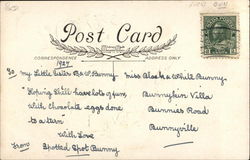 Post Card
CORRESPONDENCE
ADDRESS ONLY
1927
To My Little Sister B & W Bunny
Miss Black & White Bunny
"Hoping thill have lots of fun
Bunnykin Villa
with chocolate eggs done
Bunnies Road
to a turn"
Bunnyville
With Love
From Spotted Spot Bunny